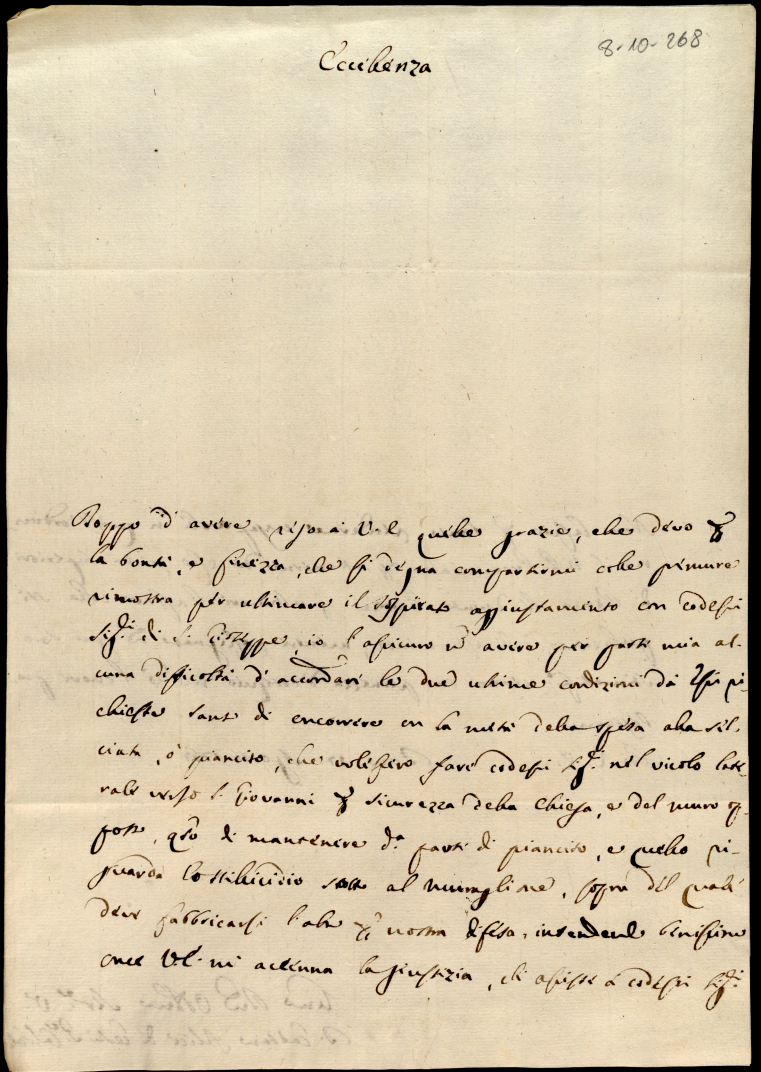 8-10-268
Eccellenza
Doppo d'avere reso à V. E. quelle grazie, che devo ꝑ
la bontà, e finezza, che si degna compartirmi colle premure
rimostra per ultimare il sospirato aggiustamento con codesti
Sig.ri di S. Giuseppe, io l'assicuro n avere per parte mia al-
cuna difficoltà d'accordare le due ultime condizioni da Essi ri-
chieste tant di concorrere con la metà della spesa alla sel-
ciata, ò piancito, che volessero fare codesti Sig.ri nel vicolo late-
rale verso S. Giovanni ꝑ sicurezza della Chiesa, e del muro op-
posto, qto di mantenere d.a parte di piancito, e quello ri-
guarda lo stillicidio sotto al muraglione, sopra del quale
deve fabbricarsi l'altro ꝑ nostra difesa, intendend benissimo
che V. E. mi accenna la giustizia, che assiste à codesti Sig.ri